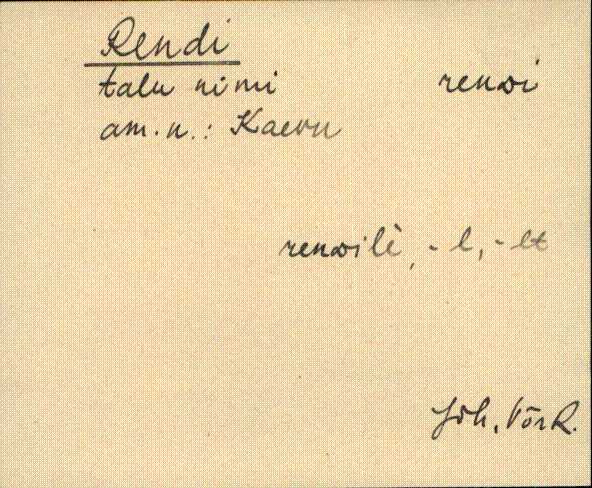 Rendi
talu nimi renᴅi
am.n.: Kaevu
renᴅilè, -l, -lt
Jõh, VõrR.